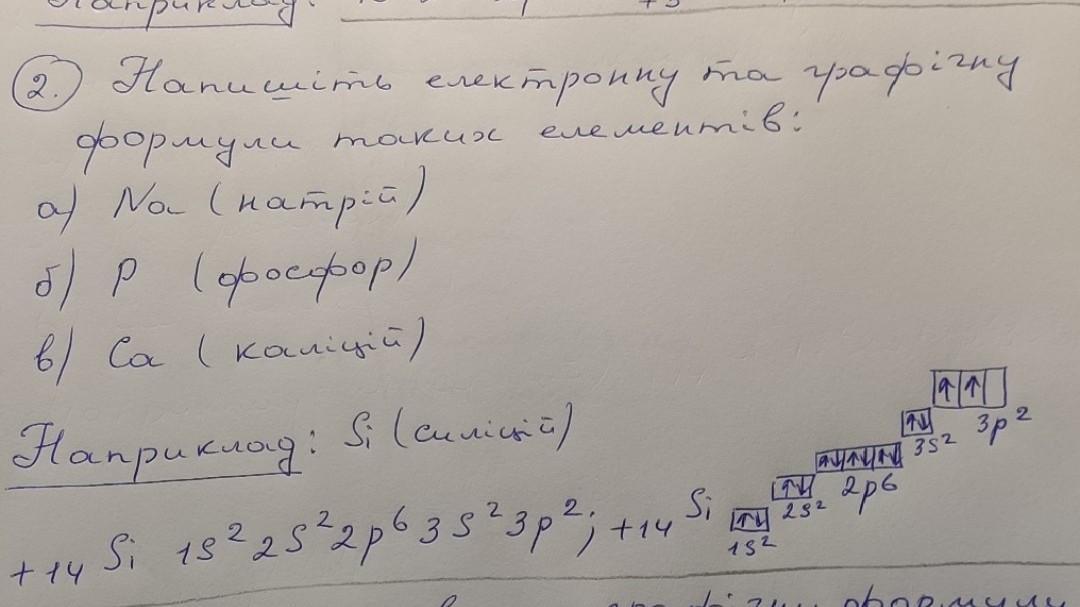 Наприклад:
2. Напишіть електронну та графічну
формули таких елементів:
а) Na (натрій)
б) P (фосфор)
в) Ca (каліцій)
Наприклад: Si (силіцій)
+14 Si 1s² 2s² 2p⁶ 3s² 3p²; +14 Si ↑↓ 1s² ↑↓ 2s² ↑↓ ↑↓ ↑↓ 2p⁶ ↑↓ 3s² ↑ ↑ 3p²
формули